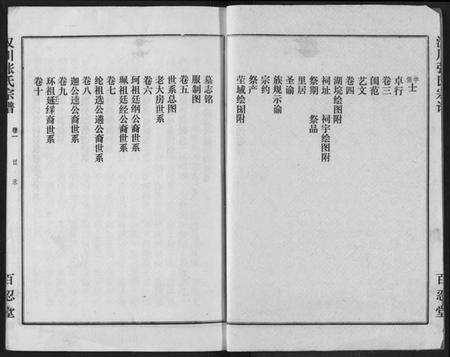 汉川张氏宗谱
百忍堂
学士
卓行
卷三
闺范
艺文
卷四
湖境绘图附
祠址 祠宇绘图附
祭期 祭品
里居
圣谕
族规示谕
宗约
祭产
茔域绘图附
墓志铭
服制图
卷五
世系总图
老大房世系
卷六
珂祖廷纲公裔世系
珮祖廷经公裔世系
卷七
纶祖选公遴公裔世系
卷八
迦公迪公裔世系
卷九
环祖廷绎裔世系
卷十
汉川张氏宗谱
卷一
目录
百忍堂